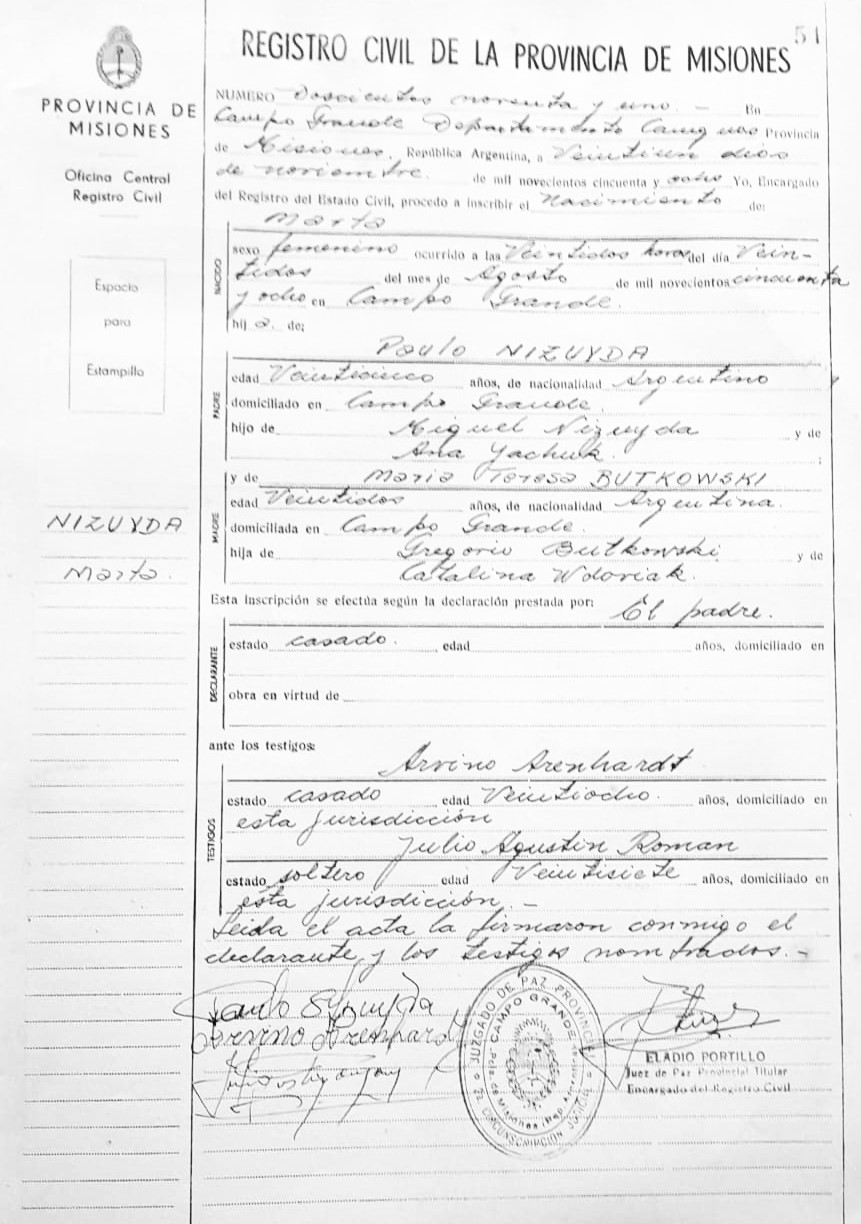 51
REGISTRO CIVIL DE LA PROVINCIA DE MISIONES
PROVINCIA DE
MISIONES
Oficina Central
Registro Civil
Espacio
para
Estampilla
NIZUYDA
Marta.
NUMERO Doscientos noventa y uno. — En
Campo Grande Departamento Cainguas Provincia
de Misiones, República Argentina, a Veintiun dias
de noviembre. de mil novecientos cincuenta y ocho Yo, Encargado
del Registro del Estado Civil, procedo a inscribir el Nacimiento de:
Marta
NACIDO
sexo femenino ocurrido a las Veintidos horas del día Vein-
tidos del mes de Agosto de mil novecientos cincuenta
y ocho en Campo Grande.
hij a. de:
Paulo NIZUYDA
PADRE
edad Veinticinco años, de nacionalidad Argentino
domiciliado en Campo Grande.
hijo de Miguel Nizuyda y de
Ana Yachuk. ;
y de Maria Teresa BUTKOWSKI
MADRE
edad Veintidos años, de nacionalidad Argentina.
domiciliada en Campo Grande.
hija de Gregorio Butkowski y de
Catalina Wdoviak.
Esta inscripción se efectúa según la declaración prestada por: El padre.
DECLARANTE
estado casado. edad años, domiciliado en
obra en virtud de
ante los testigos:
Arvino Arenhardt
TESTIGOS
estado casado edad Veintiocho. años, domiciliado en
esta jurisdicción
Julio Agustin Roman
estado soltero edad Veintisiete años, domiciliado en
esta jurisdicción. —
Leida el acta la firmaron conmigo el
declarante y los testigos nombrados. —
Arvino Arenhardt
JUZGADO DE PAZ PROVINCIAL
CAMPO GRANDE
CIRCUNSCRIPCION JUDICIAL
ELADIO PORTILLO
Juez de Paz Provincial Titular
Encargado del Registro Civil